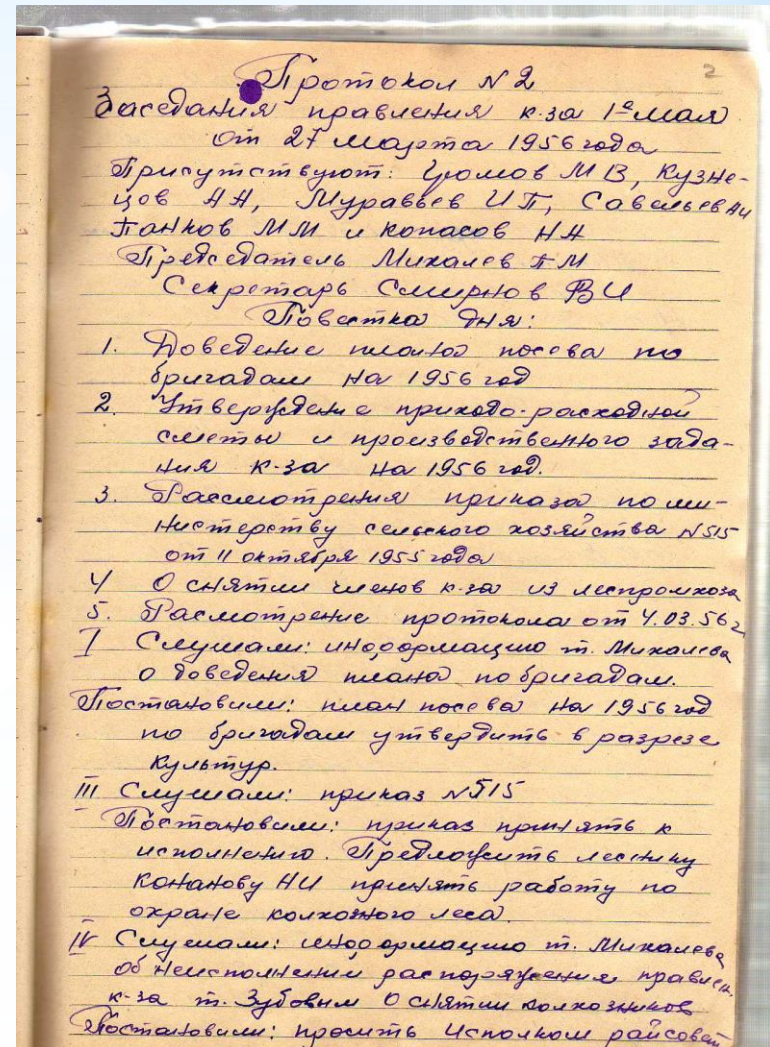 2
Протокол N 2
Заседания правления к-за 1е мая
от 27 марта 1956 года
Присутствуют: Громов М В, Кузне-
цов АА, Муравьев И П, Савельев АИ
Панков ММ и Копасов НА
Председатель Михалев ПМ
Секретарь Смирнов ВИ
Повестка дня:
1. Доведение плана посева по
бригадам на 1956 год
2. Утверждение приходо-расходной
сметы и производственного зада-
ния к-за на 1956 год.
3. Рассмотрения приказа по ми-
нистерству сельского хозяйства N 515
от 11 октября 1955 года
4 О снятии членов к-за из леспромхоза
5. Расмотрение протокола от 4.03.56г
I Слушали: информацию т. Михалева
о доведения плана по бригадам.
Постановили: план посева на 1956 год
по бригадам утвердить в разрезе
культур.
III Слушали: приказ N 515
Постановили: приказ принять к
исполнению. Предложить леснику
Конанову НИ принять работу по
охране колхозного леса.
IV Слушали: информацию т. Михалева
об неисполнении распоряжения правлен.
к-за т. Зубовым О снятии колхозников
Постановили: просить Исполком райсовет